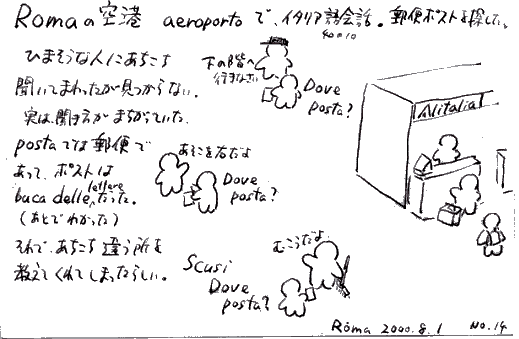 Romaの空港 aeroporto で、イタリア語会話。郵便ポストを探した。
ひまそうな人にあちこち
聞いてまわったが見つからない。
実は、聞き方がまちがっていた。
postaでは郵便で
あって、ポストは
buca delle lettereだった。
(あとでわかった)
それで、あちこち違う所を
教えてくれてしまったらしい。
下の階へ
行きなさい
Dove
posta?
Alitalia
あそこを右だよ
Dove
posta?
むこうだよ
Scusi
Dove
posta?
Roma 2000.8.1 NO.14